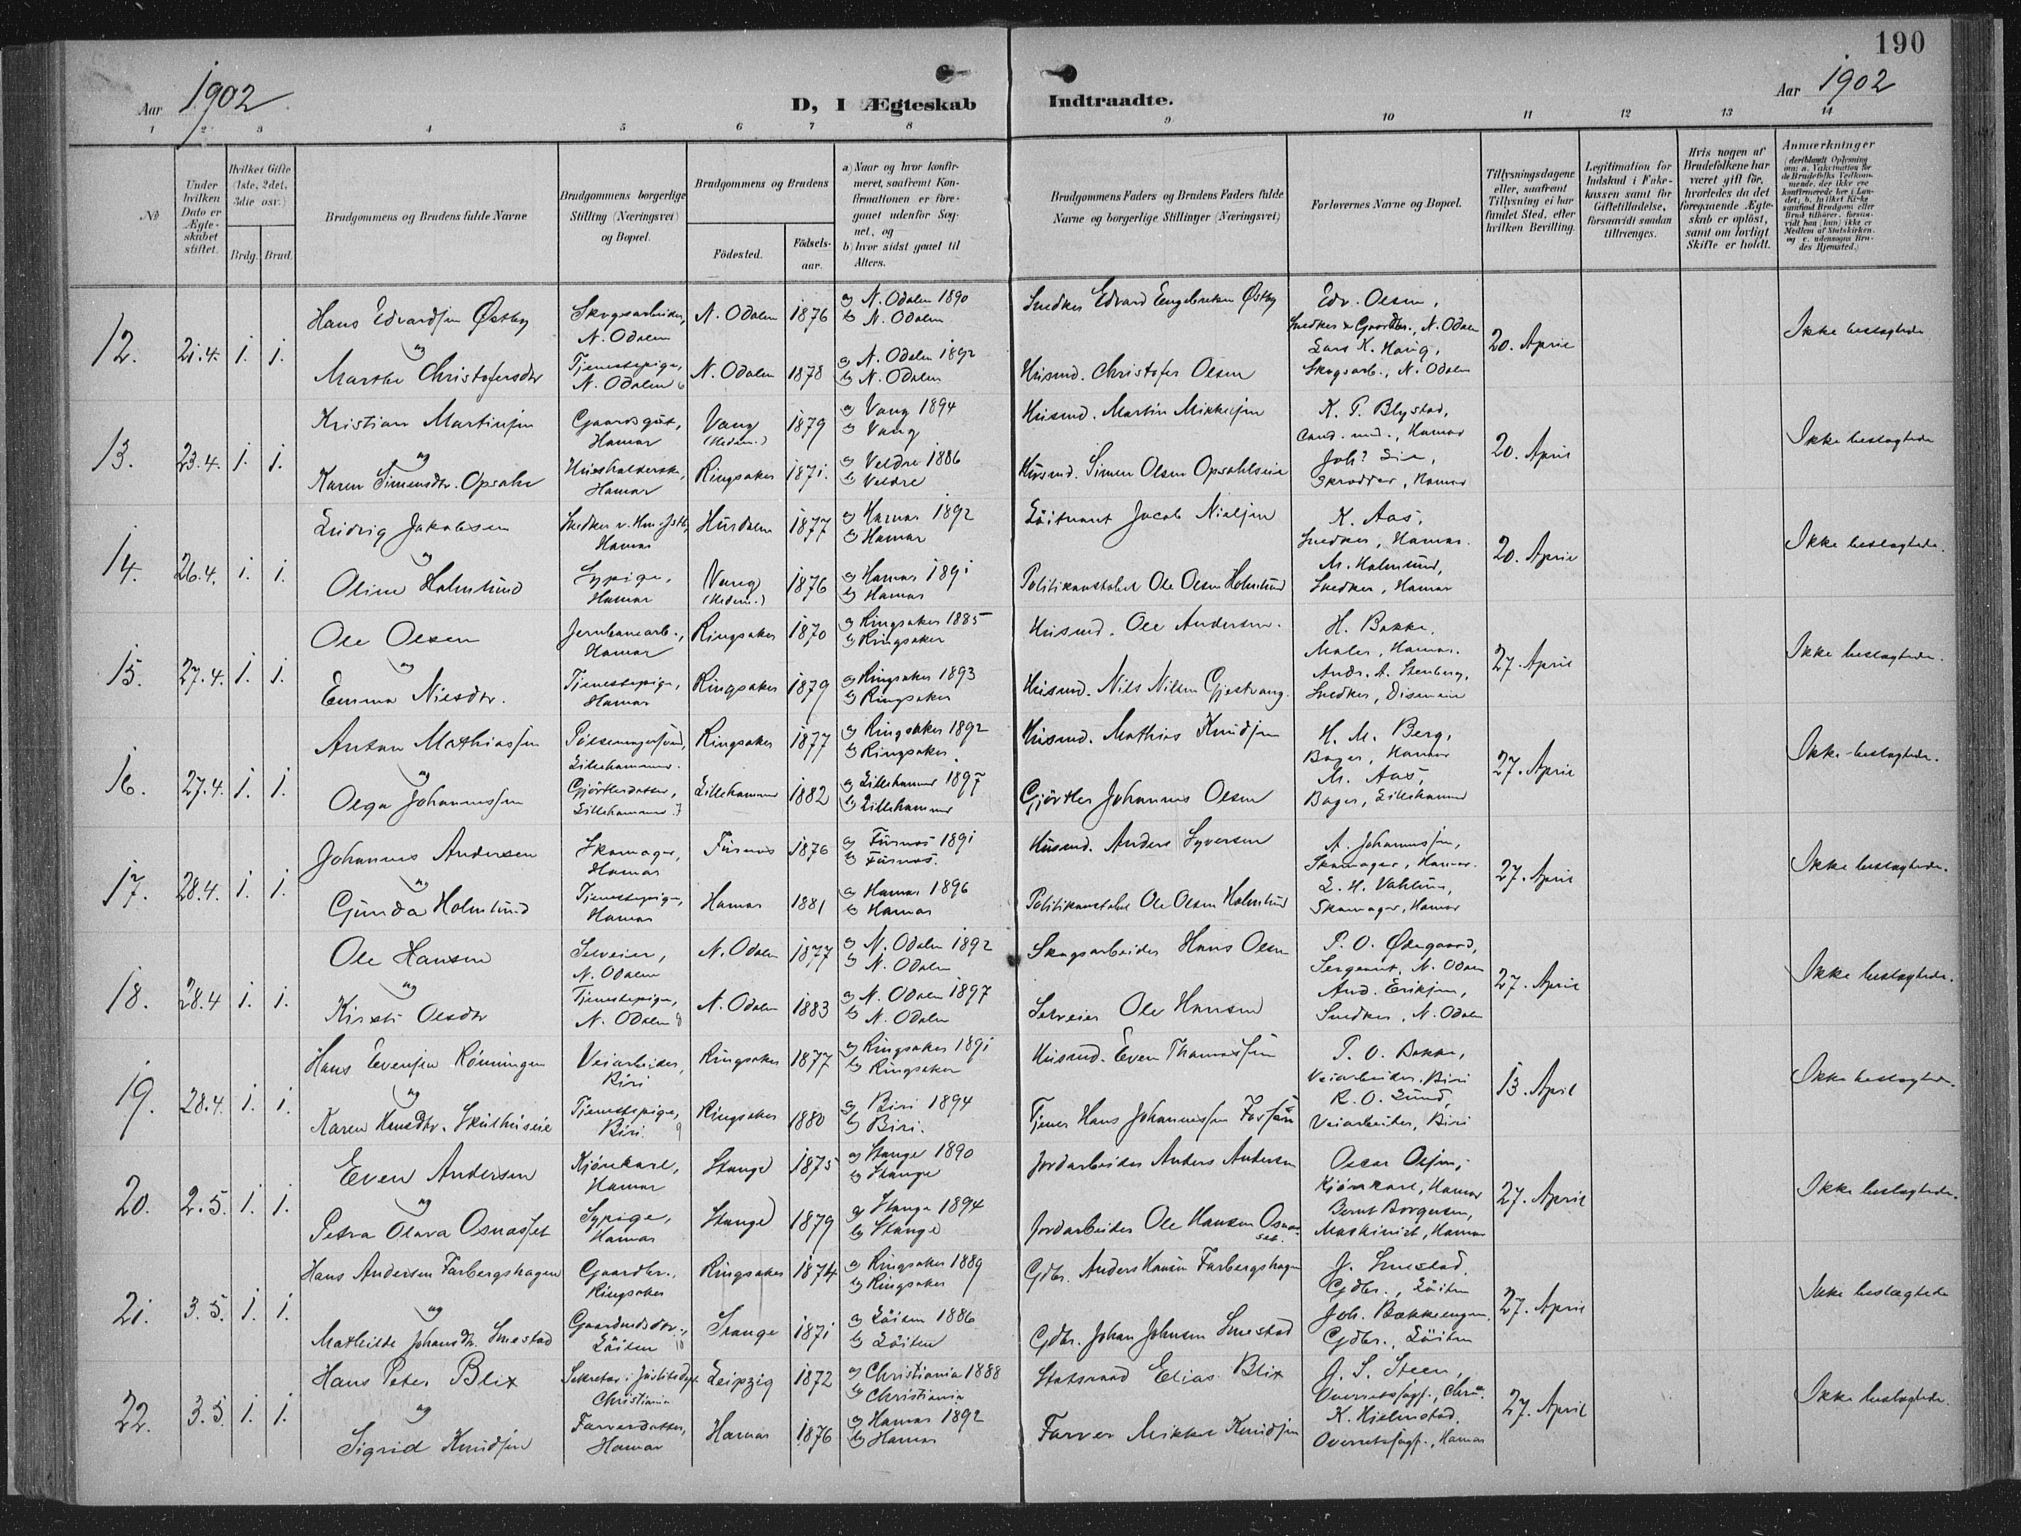 190
Aar 1902
D, I Ægteskab Indtraadte.
Aar 1902
1 2 3 4 5 6 7 8 9 10 11 12 13 14
No
Under hvilken Dato er Ægteskabet stiftet.
Hvilket Gifte (1ste, 2det, 3die osv.)
Brdg. Brud.
Brudgommens og Brudens fulde Navne
Brudgommens borgerlige Stilling (Næringsvei) og Bopæl.
Brudgommens og Brudens
Fødested.
Fødselsaar.
a) Naar og hvor konfirmeret, saafremt Konfirmationen er foregaaet udenfor Sognet, og
b) hvor sidst gaaet til Alters.
Brudgommens Faders og Brudens Faders fulde Navne og borgerlige Stillinger (Næringsvei)
Forlovernes Navne og Bopæl.
Tillysningsdagene eller, saafremt Tillysning ei har fundet Sted, efter hvilken Bevilling.
Legitimation for Indskud i Enkekassen samt for Giftetilladelse, forsaavidt saadan tiltrænges.
Hvis nogen af Brudefolkene har været gift før, hvorledes da det foregaaende Ægteskab er opløst, samt om lovligt Skifte er holdt.
Anmærkninger
12. 21.4. 1. 1. Hans Edvardsen Østby Skogsarbeider, N. Odalen N. Odalen 1876 a) N. Odalen 1890 b) N. Odalen Snedker Edvard Engebretsen Østby Edv. Olsen, Snedker & Gaardbr., N. Odalen 20. April Ikke beslægtede
og
Marthe Christofersdtr Tjenestepige, N. Odalen N. Odalen 1878 a) N. Odalen 1892 b) N. Odalen Husmd. Christofer Olsen Lars K. Haug, Skogsarb., N. Odalen
13. 23.4. 1. 1. Kristian Martinsen Gaardsgut, Hamar Vang (Hedem.) 1879 a) Vang 1894 b) Vang Husmd. Martin Mikkelsen K. P. Blystad, cand. med., Hamar 20. April Ikke beslægtede
og
Karen Simensdtr. Opsahl Husholderske, Hamar Ringsaker 1871. a) Veldre 1886 b) Veldre Husmd. Simen Olsen Opsahlseie Joh? Lie, Skrædder, Hamar
14. 26.4. 1. 1. Ludvig Jakobsen Hamar Hurdalen 1877 a) Hamar 1892 b) Hamar Løitnant Jacob Nielsen K. Aas, Snedker, Hamar. 20. April Ikke beslægtede.
og
Oline Holmlund Sypige, Hamar Vang (Hedem.) 1876 a) Hamar 1891 b) Hamar Politikonstabel Ole Olsen Holmlund M. Holmlund, Snedker, Hamar
15. 27.4. 1. 1. Ole Olsen Jernbanearb., Hamar Ringsaker 1870 a) Ringsaker 1885 b) Ringsaker Husmd. Ole Andersen. H. Bakke, Maler, Hamar. 27. April Ikke beslægtede.
og
Emma Nilsdtr. Tjenestepige, Hamar Ringsaker 1879 a) Ringsaker 1893 b) Ringsaker Husmd. Nils Nilsen Gjestvang. Andr. A. Stenberg, Snedker, Disenseie
16. 27.4. 1. 1. Anton Mathiassen Pølsemagersvend, Lillehammer. Ringsaker 1877 a) Ringsaker 1892 b) Ringsaker. Husmd. Mathias Knudsen H. M. Berg, Bager, Hamar 27. April Ikke beslægtede.
og
Olga Johannessen Gjørtlerdatter, Lillehammer Lillehammer 1882 a) Lillehammer 1897 b) Lillehammer Gjørtler Johannes Olsen M. Aas, Bager, Lillehammer
17. 28.4. 1. 1. Johannes Andersen Skomager, Hamar Furnes 1876 a) Furnes 1891 b) Furnes. Husmd. Anders Syversen A. Johannessen, Skomager, Hamar. 27. April Ikke beslægtede.
og
Gunda Holmlund Tjenestepige, Hamar Hamar 1881 a) Hamar 1896 b) Hamar Politikonstabel Ole Olsen Holmlund L. H. Vahlum, Skomager, Hamar
18. 28.4 1. 1. Ole Hansen Selveier, N. Odalen N. Odalen 1877 a) N. Odalen 1892 b) N. Odalen Skogsarbeider Hans Olsen P. O. Ødegaard, Sergeant, N. Odalen 27. April Ikke beslægtede.
og
Kirsti Olsdtr Tjenestepige, N. Odalen N. Odalen 1883 a) N. Odalen 1897 b) N. Odalen Selveier Ole Hansen And. Eriksen, Snedker, N. Odalen
19. 28.4. 1. 1. Hans Evensen Rønningen Veiarbeider, Biri Ringsaker 1877 a) Ringsaker 1891 b) Ringsaker Husmd. Even Thomassen P. O. Bakke, Veiarbeider, Biri 13 April Ikke beslægtede.
og
Karen Hansdtr. Skulhuseie Tjenestepige, Biri. Ringsaker 1880 a) Biri 1894 b) Biri. Tjener Hans Johannessen R. O. Lund, Veiarbeider, Biri
20. 2.5. 1. 1. Even Andersen Kjørekarl, Hamar Stange 1875 a) Stange 1890 b) Stange Jordarbeider Anders Andersen Oscar Olsen, Kjørekarl, Hamar 27. April Ikke beslægtede.
og
Petra Olava Osnasset Sypige, Hamar Stange 1879 a) Stange 1894 b) Stange Jordarbeider Ole Hansen Osnasset. Bernt Borgersen, Maskinist, Hamar
21. 3.5. 1. 1. Hans Andersen Farbergshagen Gaardbr., Ringsaker Ringsaker 1874 a) Ringsaker 1889 b) Ringsaker Gdbr. Anders Hansen Farbergshagen J. Smestad, Gdbr., Løiten 27. April Ikke beslægtede
og
Mathilde Johansdtr. Smestad Gaardmdsdtr., Løiten Stange 1871 a) Løiten 1886 b) Løiten Gdbr. Johan Johnsen Smestad Joh. Bækkeengen, Gdbr., Løiten
22. 3.5. 1. 1. Hans Peter Blix Sekretær i Justitsdept Christiania Leipzig 1872 a) Christiania 1888 b) Christiania Statsraad Elias Blix J. S. Steen, Overretssagf., Chra. 27. April Ikke beslægtede.
og
Sigrid Knudsen Farverdatter, Hamar Hamar 1876 a) Hamar 1892 b) Hamar Farver Mikkel Knudsen K. Hjelmstad, Overretssagf., Hamar